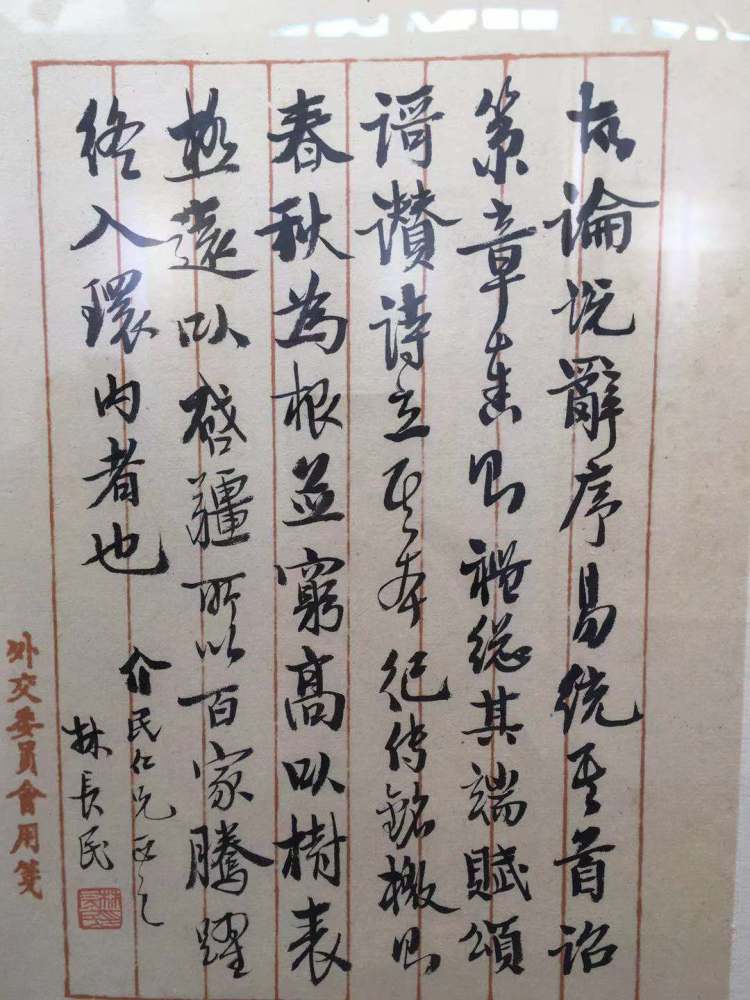 故論説辭序易統其首詔
策章奏則禮總其端賦頌
謌讚詩立其本紀傳銘檄則
春秋為根並窮高以樹表
極遠以啓疆所以百家騰躍
終入環内者也
介民仁兄正之
林長民
外交委員會用箋